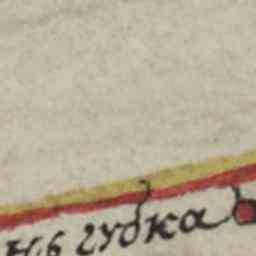 нь губка